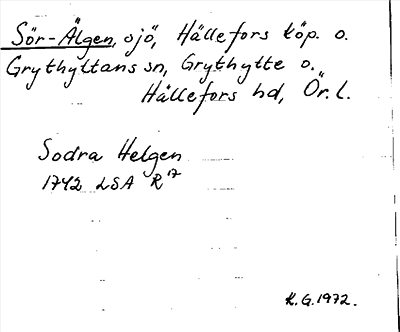 Sör-Älgen, sjö, Hällefors köp. o.
Grythyttans sn, Grythytte o.
Hällefors hd, Ör. l.
Sodra Helgen
1742 LSA R¹⁷
K.G. 1972.